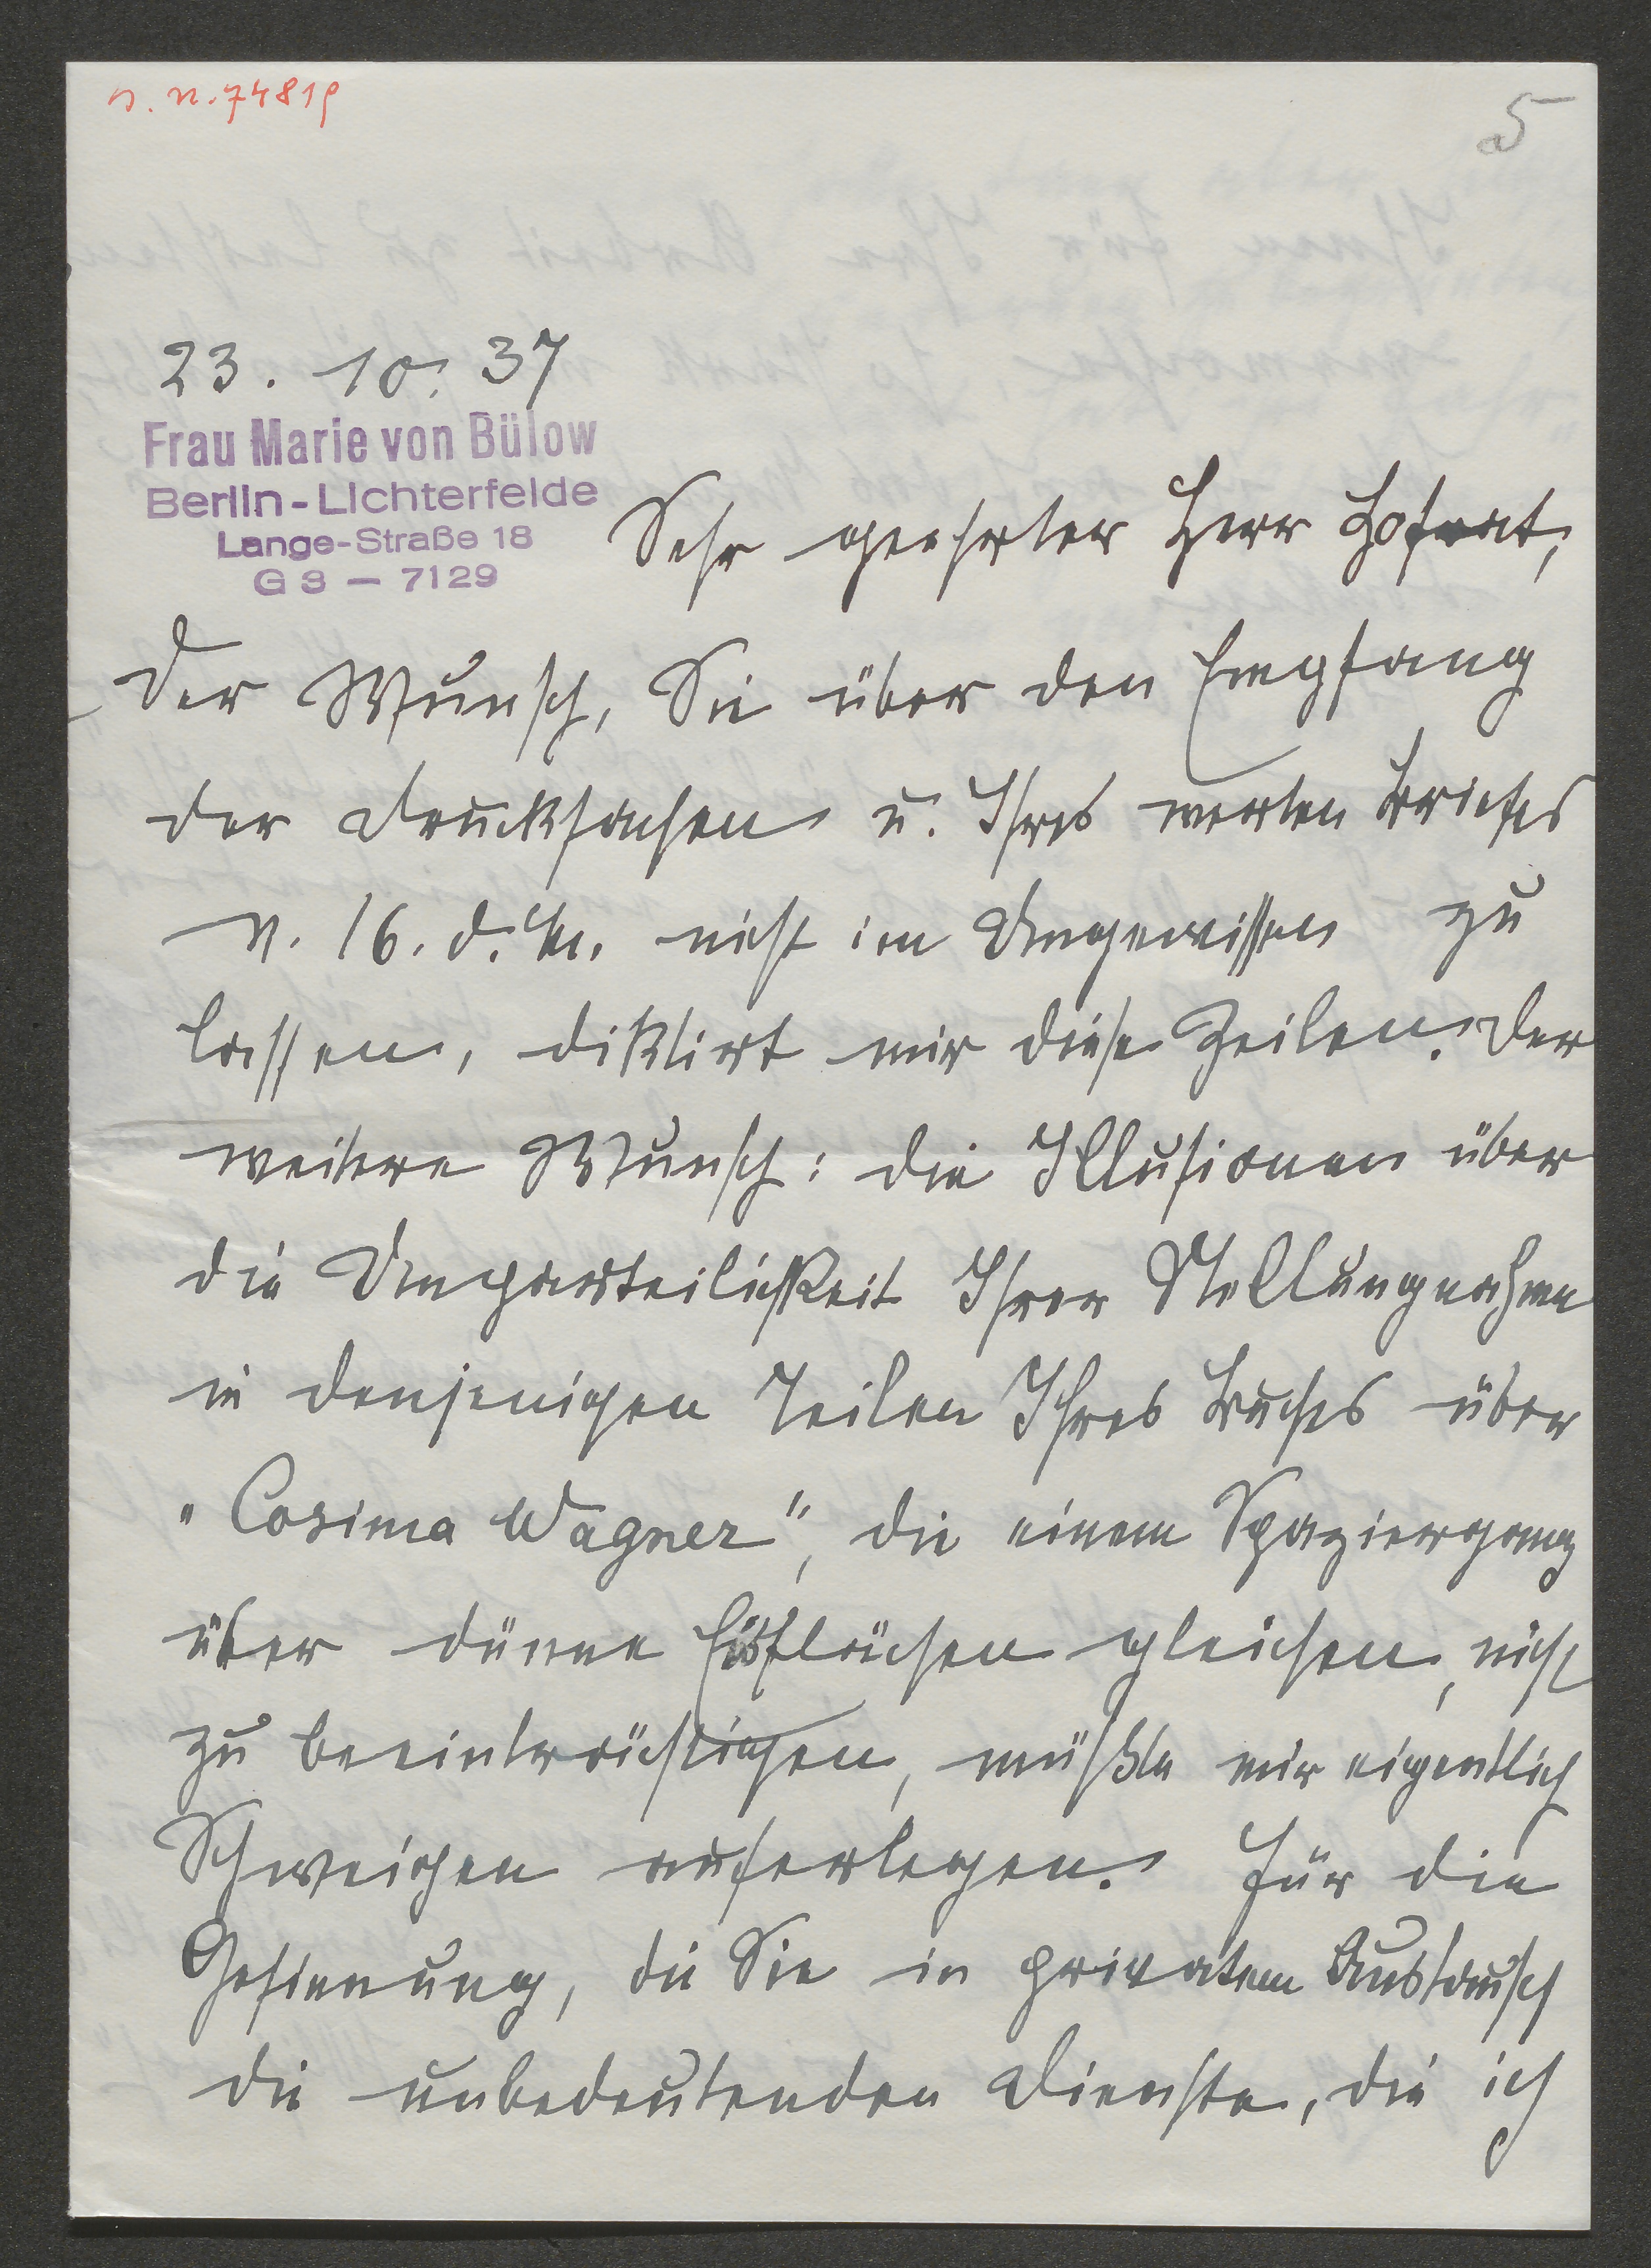 N. N. 74819
5
23. 10. 37
Frau Marie von Bülow
Berlin-Lichterfelde
Lange-Straße 18
G 3 — 7129
Sehr geehrter Herr Hofrat,
Der Wunsch, Sie über den Empfang
der Drucksachen u. Ihres werten Briefes
v. 16. d. M. nicht im Ungewissen zu
lassen, diktirt mir diese Zeilen. Der
weitere Wunsch: die Illusionen über
die Unparteilichkeit Ihrer Stellungnahme
in denjenigen Teilen Ihres Buches über
"Cosima Wagner", die einem Spaziergang
über dünne Eisflächen gleichen, nicht
zu beeinträchtigen, müßte mir eigentlich
Schweigen auferlegen. Für die
Gesinnung, die Sie in privatem Austausch
die unbedeutenden Dienste, die ich